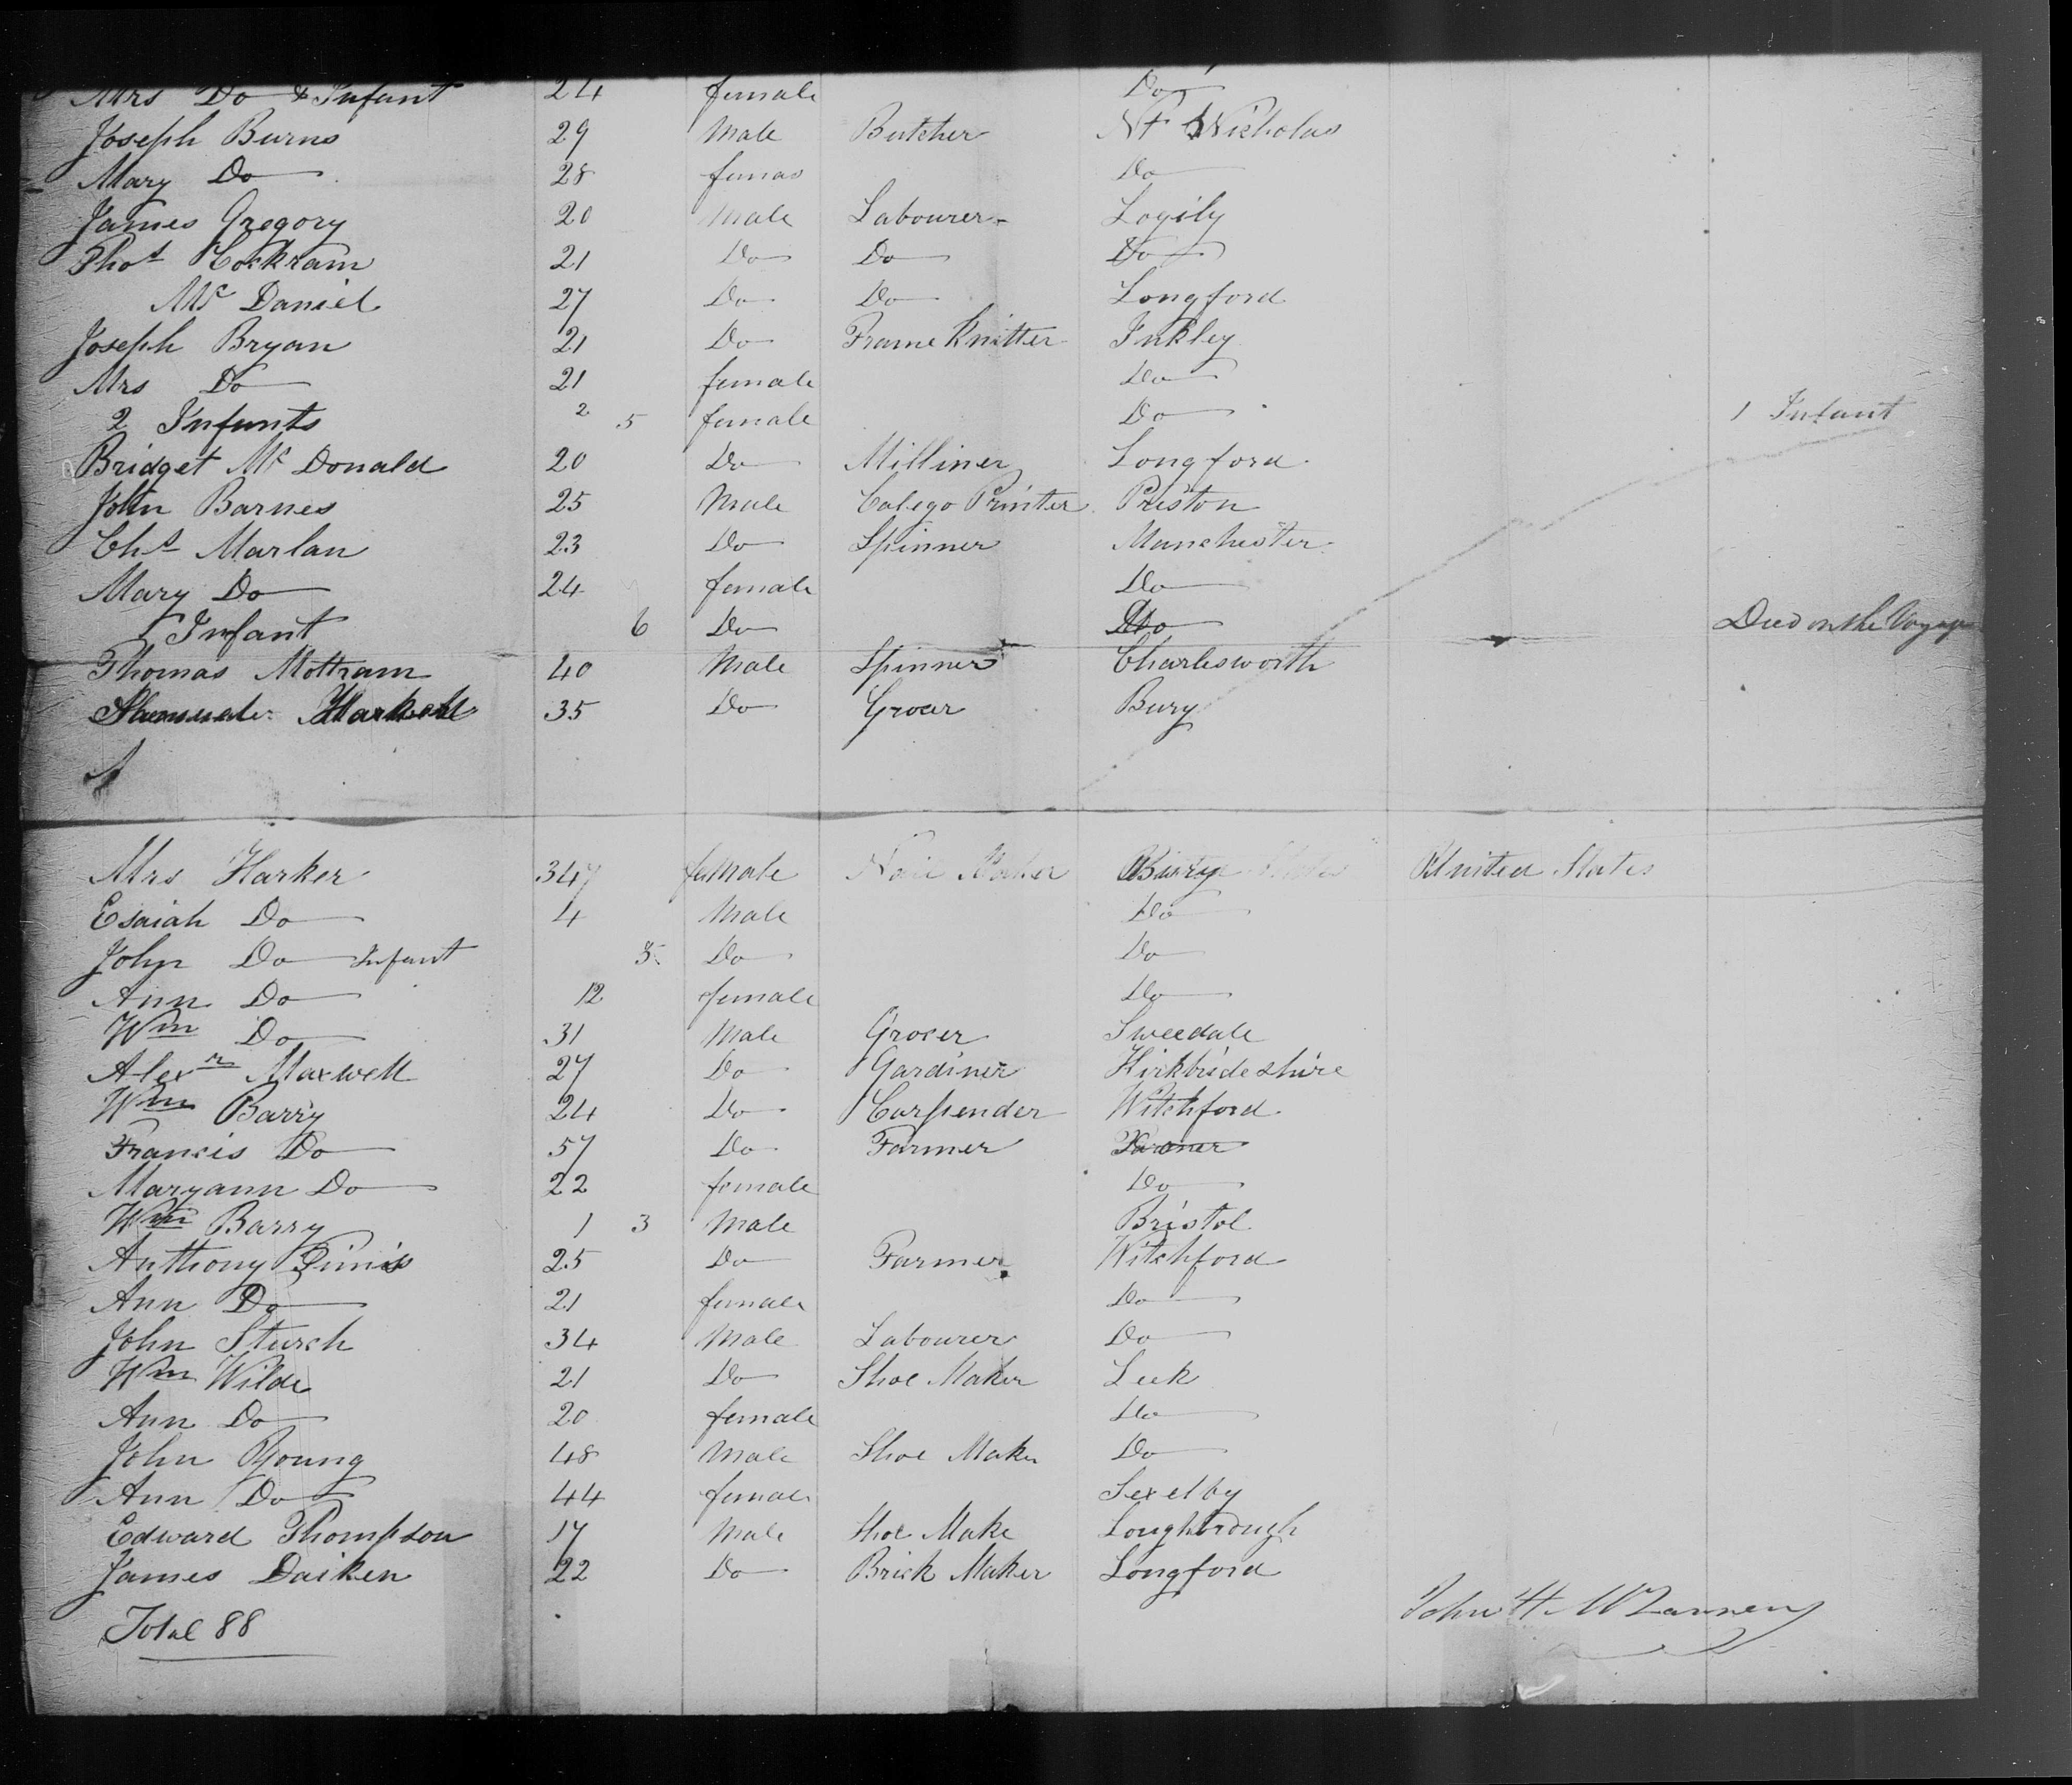 Mrs Do & Infant 24 female Do
Joseph Burns 29 Male Butcher Nicholas
Mary Do 28 femas Do
James Gregory 20 Male Labourer Logily
Thos Cockram 21 Do Do Do
Mc Daniel 27 Do Do Longford
Joseph Bryan 21 Do Frame Knitter Inkley
Mrs Do 21 female Do
2 Infants 2 5 female Do 1 Infant
Bridget Mc Donald 20 Do Milliner Longford
John Barnes 25 Male Calego Printer Preston
Chs Marlan 23 Do Spinner Manchester
Mary Do 24 female Do
Infant 6 Do Do Died on the Voyage
Thomas Mottram 40 Male Spinner Charlesworth
35 Do Grocer Bury
Mrs Harker 34 female Bury United States
Esaiah Do 4 Male Do
John Do Infant Do Do
Ann Do 12 female Do
Wm Do 31 Male Grocer Tweedale
Alexr Maxwell 27 Do Gardiner Kirkbrideshire
Wm Barry 24 Do Carpender Witchford
Francis Do 57 Do Farmer
Maryann Do 22 female Do
Wm Barry 1 3 Male Bristol
Anthony 25 Do Farmer Witchford
Ann Do 21 female Do
John Sturch 34 Male Labourer Do
Wm Wilde 21 Do Shoe Maker Leek
Ann Do 20 female Do
John Young 48 Male Shoe Maker Do
Ann Do 44 female Sexelby
Edward Thompson 17 Male Shoe Make Loughborough
James Daiken 22 Do Brick Maker Longford
Total 88
John H